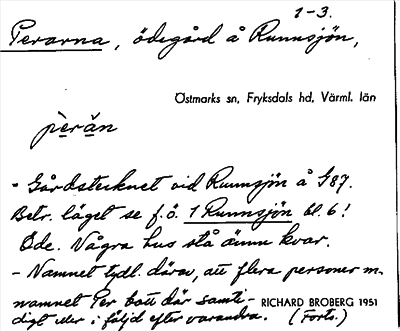 1-3.
Perarna, ödegård å Runnsjön,
Östmarks sn, Fryksdals hd, Värml. län
pèrăn
- Gårdstecknet vid Runnsjön å G87.
Betr. läget se f.ö. 1 Runnsjön bl. 6!
Öde. Några hus stå ännu kvar.
- Namnet tydl. därav, att flera personer m.
namnet Per bott där samti-
digt eller i följd efter varandra. (Forts.)
RICHARD BROBERG 1951